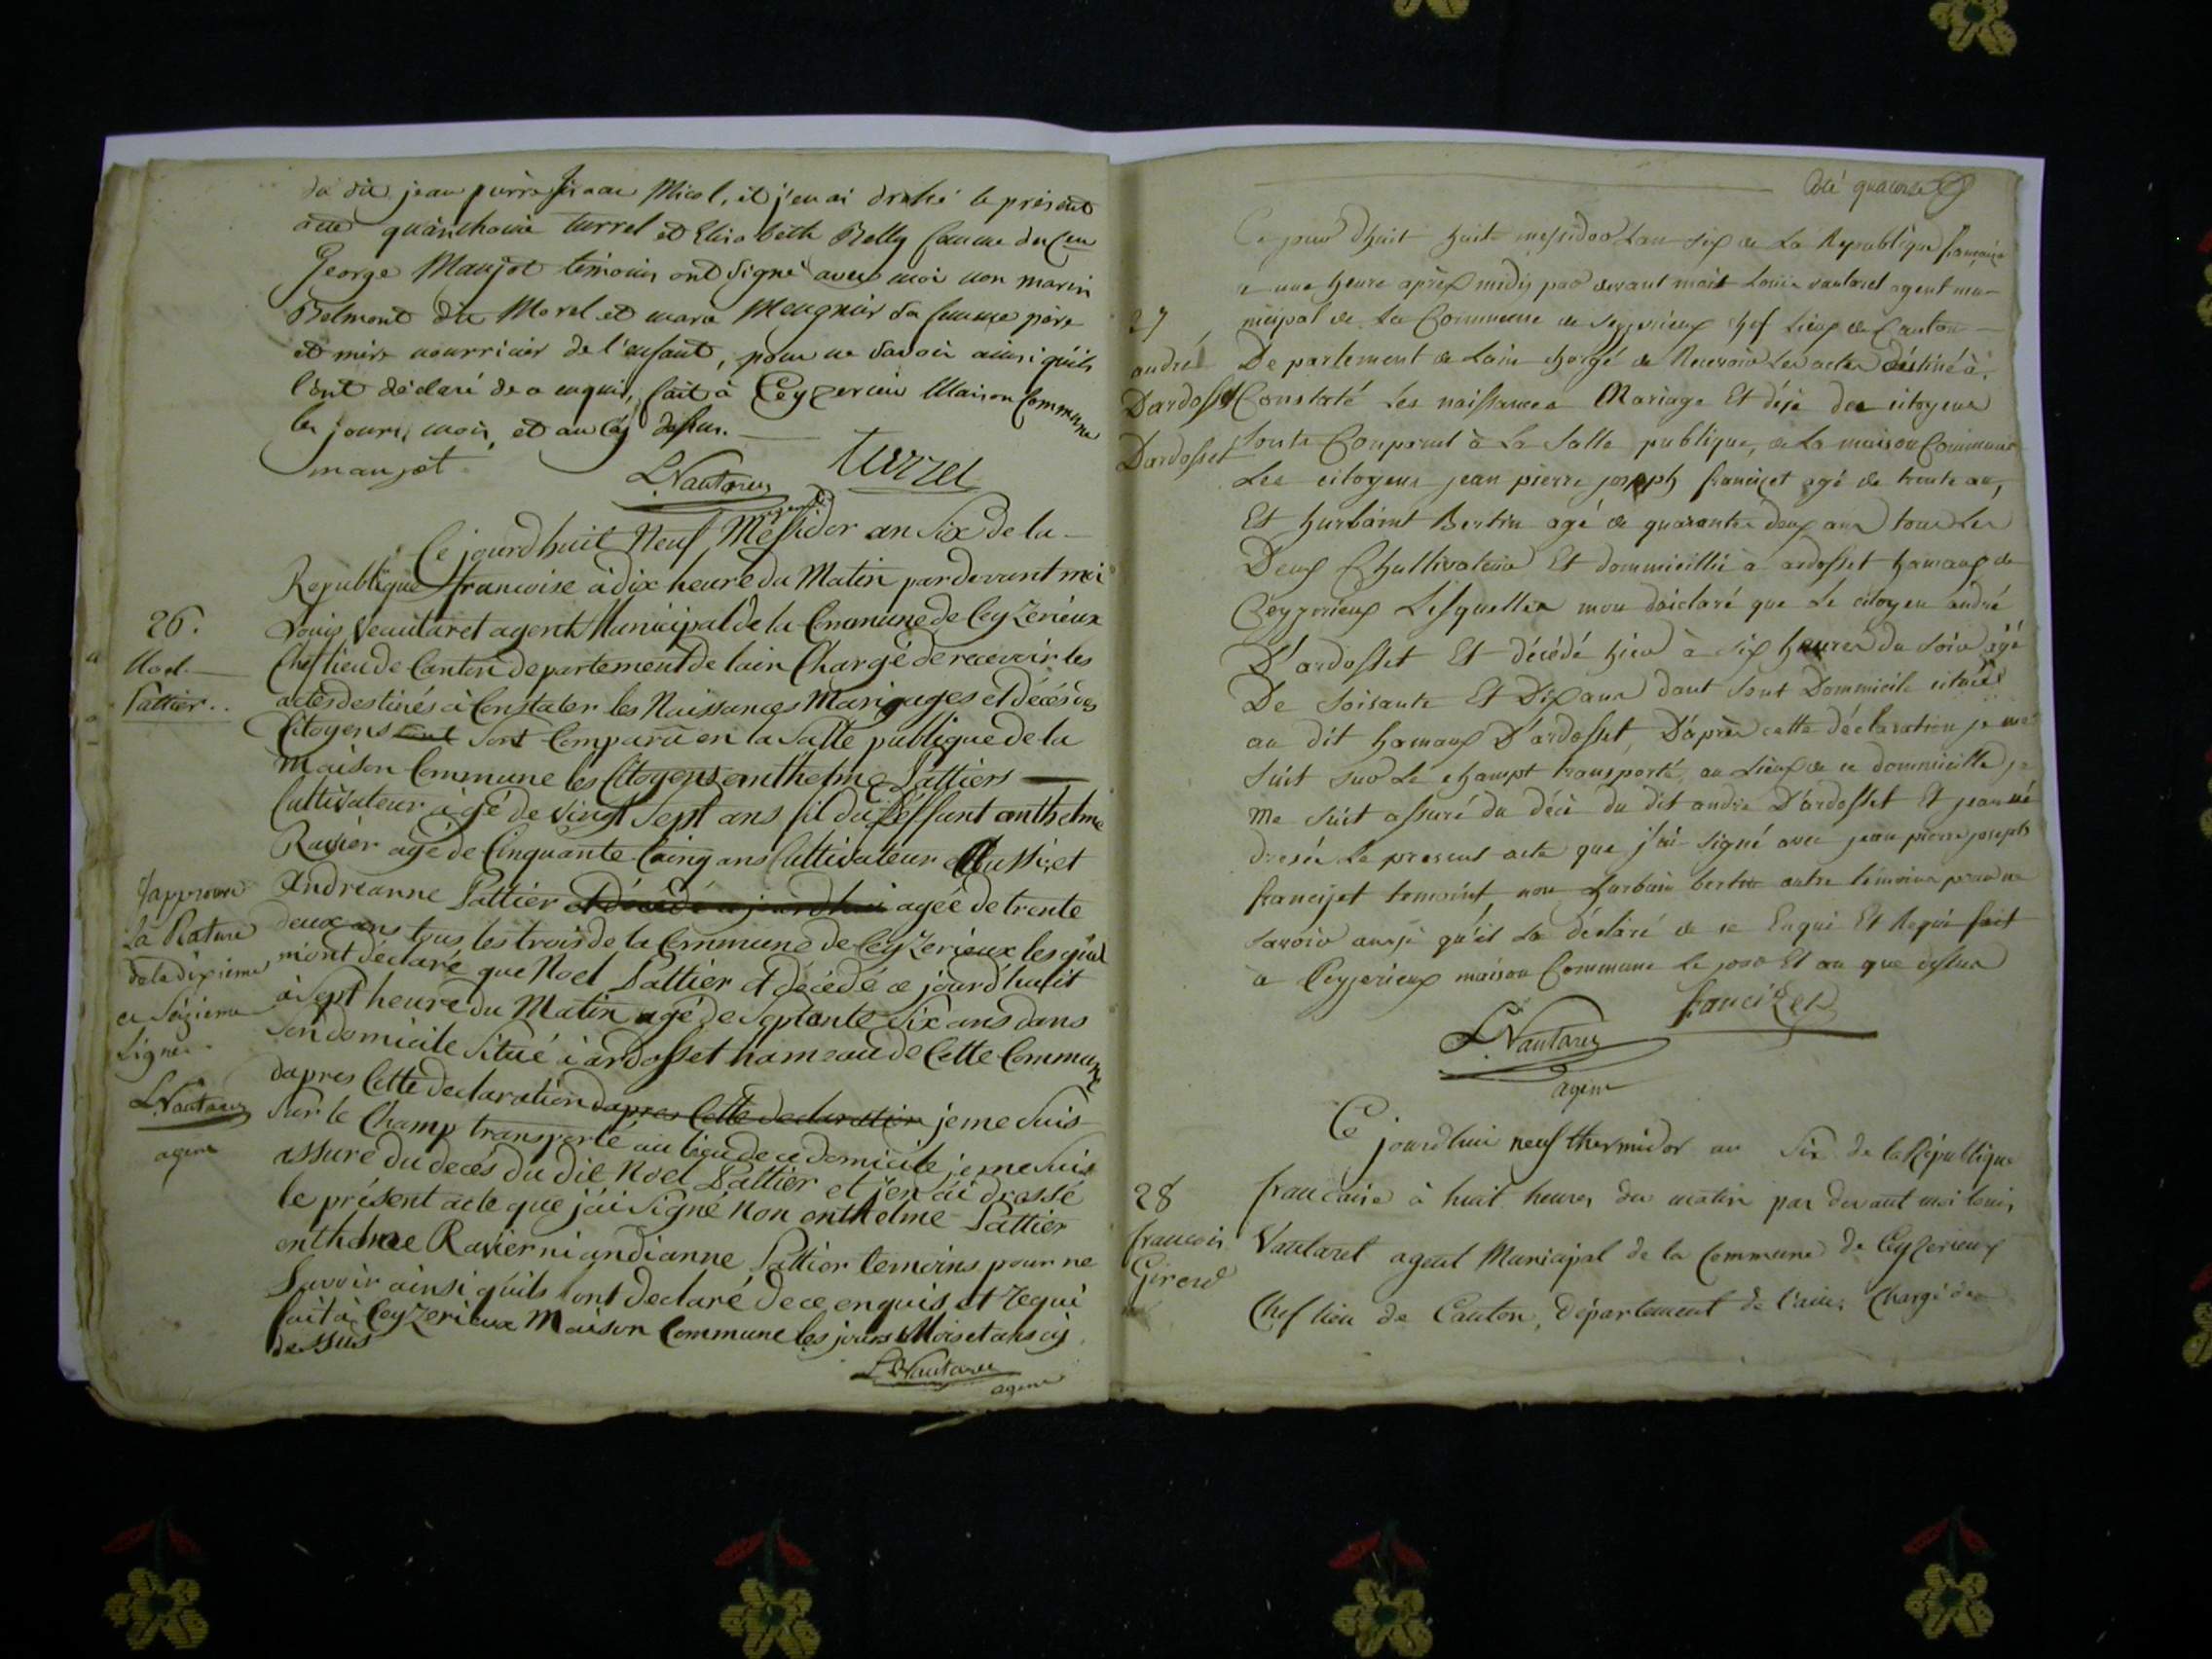 du dit jean pierre Micol, et j'en ai dressé le present
acte qu'anthoine turrel et Elisabeth Belly femme du feu
George Maujot temoins ont signé avec moi non marin
Belmont dit Morel et marie Meugnier sa femme père
et mère nourricier de l'enfant, pour ne savoir ainsi qu'ils
l'ont déclaré de a enquis, fait à Ceyzerieu Maison Commune
les jours, mois, et an cy dessus.
maujot
L. Vautaret turrel
agent
Ce jourd huit Neuf Messidor an Six de la
Republique francoise à dix heure du Matin pardevant moi
26.
Louis Veautaret agent Municipal de la Commune de Ceyzérieux
Noel
Chef lieu de Canton departement de lain Chargé de recevoir les
Pattier..
actes destinés à Constater les Naissances Mariages et décés des
Citoyens sont Comparu en la Salle publique de la
Maison Commune les Citoyens anthelme Pattiers
Cultivateur agé de vingt Sept ans fil du déffunt anthelme
Ravier agé de Cinquante Cainq ans Cultivateur Aussi, et
Andréanne Pattier et décédé ce jourd hui agée de trente
deux ans tous les trois de la Commune de Ceyzerieux les quel
m'ont déclaré que Noel Pattier et décédé ce jourd'huit
à Sept heure du Matin agé de Septante Six ans dans
Son domicile Situé à ardosset hameau de Cette Commune
dapres Cette declaration dapres Cette declaration je me Suis
Sur le Champ transporté au lieu de ce domicile je me Suis
assuré du decés du dit Noel Pattier et j'en ai drossé
le présent acte que j'ai Signé Non anthelme Pattier
anthelme Ravier ni andianne Pattier temoins pour ne
Savoir ainsi quils l'ont declaré de ce enquis et requi
fait à Ceyzerieux Maison Commune les jours Mois et ans cy
dessus
L. Vautaret
agent
J'approuve
La Rature
de la dixieme
et Seizieme
Ligne.
L. Vautaret
agent
Coté quatorse
Ce jour dhuit huit messidor Lan six de La Republique francaise
a une heure apres midy par devant moit Louis vautaret agent mu-
27
nicipal de La Commune de Seyzerieux chef Lieux de Canton
andré
Departement de Lain chargé de Recevoir Les actes déstiné à
Dardosset
Constaté Les naissances Mariage Et déjé des citoyens
Dardosset
Sont Comparut à La Salle publique, de La maison Commune
Les citoyens jean pierre joseph francizet agé de trente an,
Et hurbaint Bertin agé de quarante deux ans tous Les
Deux Chultivateur Et dommicillié a ardosset hamaux de
Ceyzerieux Lesquelles mon daiclaré que Le citoyen andré
D'ardosset Et décédé hier à six heures du soir agé
De soisante Et Dix ans dant sont Dommicile situé
au dit hamaux D'ardosset, D'après cette déclaration je me
suit sur Le champt transporté au Lieux de ce dommicille je
me suit assuré du décè du dit andré D'ardosset Et jeanné
dressée Le present acte que j'ai signé avec jean pierre joseph
francizet temoint, non hurbain bertin autre temoins pour ne
savoir ausi qu'il La déclaré de ce Enqui Et Requi fait
a Ceyzerieux maison Commune Le jour Et an que dessus
L. Vautaret francizet
agent
Ce jourdhui neuf thermidor an Six de la République
28
francaise à huit heures du matin par devant moi louis
francois
Vautaret agent Municipal de la Commune de Ceyzerieux
Girord
Chef lieu de Canton, département de l'ain, Chargé de